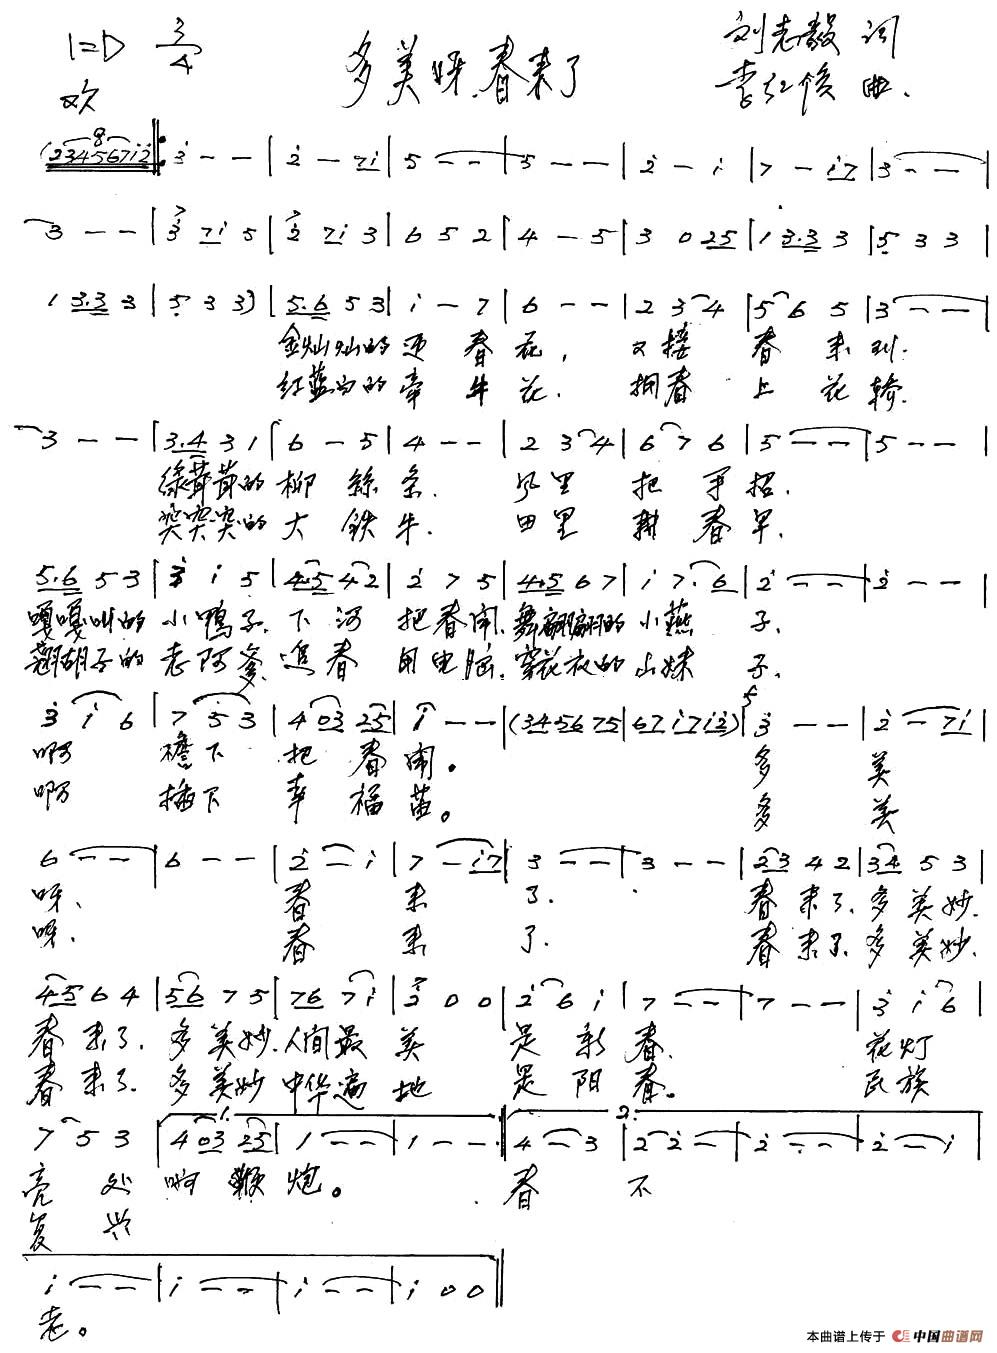 1=D 3/4
多美呀,春来了
刘志毅 词
李红俊 曲.
欢
(234567i2 ‖: 3 - - | 2 - 7i | 5 - - | 5 - - | 2 - i | 7 - i7 | 3 - - |
3 - - | 3 7i 5 | 2 7i 3 | 6 5 2 | 4 - 5 | 3 0 25 | 1 3.3 3 | 5 3 3 |
1 3.3 3 | 5 3 3) | 5.6 5 3 | i - 7 | 6 - - | 2 3 4 | 5 6 5 | 3 - - |
金灿灿的迎春花,又接春来到.
红蓝白的牵牛花.拥春上花轿.
3 - - | 3.4 3 1 | 6 - 5 | 4 - - | 2 3 4 | 6 7 6 | 5 - - | 5 - - |
绿茸茸的柳丝条.风里把手招.
突突突的大铁牛.田里耕春早.
5.6 5 3 | 3 i 5 | 4.5 4 2 | 2 7 5 | 4.5 6 7 | i 7. 6 | 2 - - | 2 - - |
嘎嘎叫的小鸭子.下河把春闹.舞翩翩的小燕子.
翘胡子的老阿爹追春用电脑.穿花衣的山妹子.
3 i 6 | 7 5 3 | 4 03 25 | i - - | (34 56 75 | 67 i7 i2) | 5 3 - - | 2 - 7i |
啊 檐下把春闹。多美
啊 插下幸福苗。多美
6 - - | 6 - - | 2 - i | 7 - i7 | 3 - - | 3 - - | 23 4 2 | 34 5 3 |
呀、春来了.春来了.多美妙.
呀.春来了.春来了.多美妙.
45 6 4 | 56 7 5 | 76 7 i | 2 0 0 | 2 6 i | 7 - - | 7 - - | 3 i 6 |
春来了.多美妙.人间最美是新春.花灯
春来了.多美妙 中华遍地是阳春。民族
1. 2.
7 5 3 | 4 03 25 | 1 - - | 1 - - :‖ 4 - 3 | 2 2 - | 2 - - | 2 - i |
亮处响鞭炮。春不
复兴
i - - | i - - | i - - | i 0 0 ‖
老。
本曲谱上传于 中国曲谱网